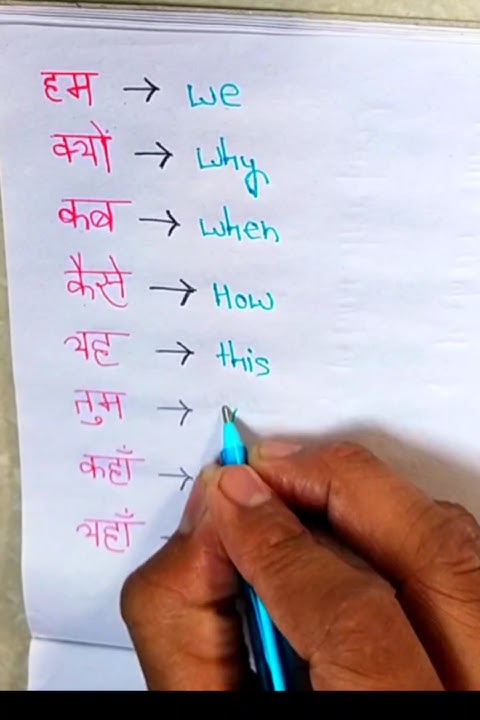 हम → we
क्यों → why
कब → when
कैसे → How
यह → this
तुम →
कहाँ →
यहाँ